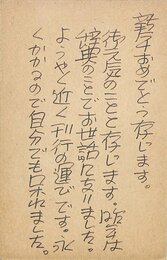 新年おめでとう存じます。
御元気のことと存じます。昨年は
辞典のことでお世話になりました。
ようやく近く刊行の運びです。永
くかかるので自分でも呆れました。